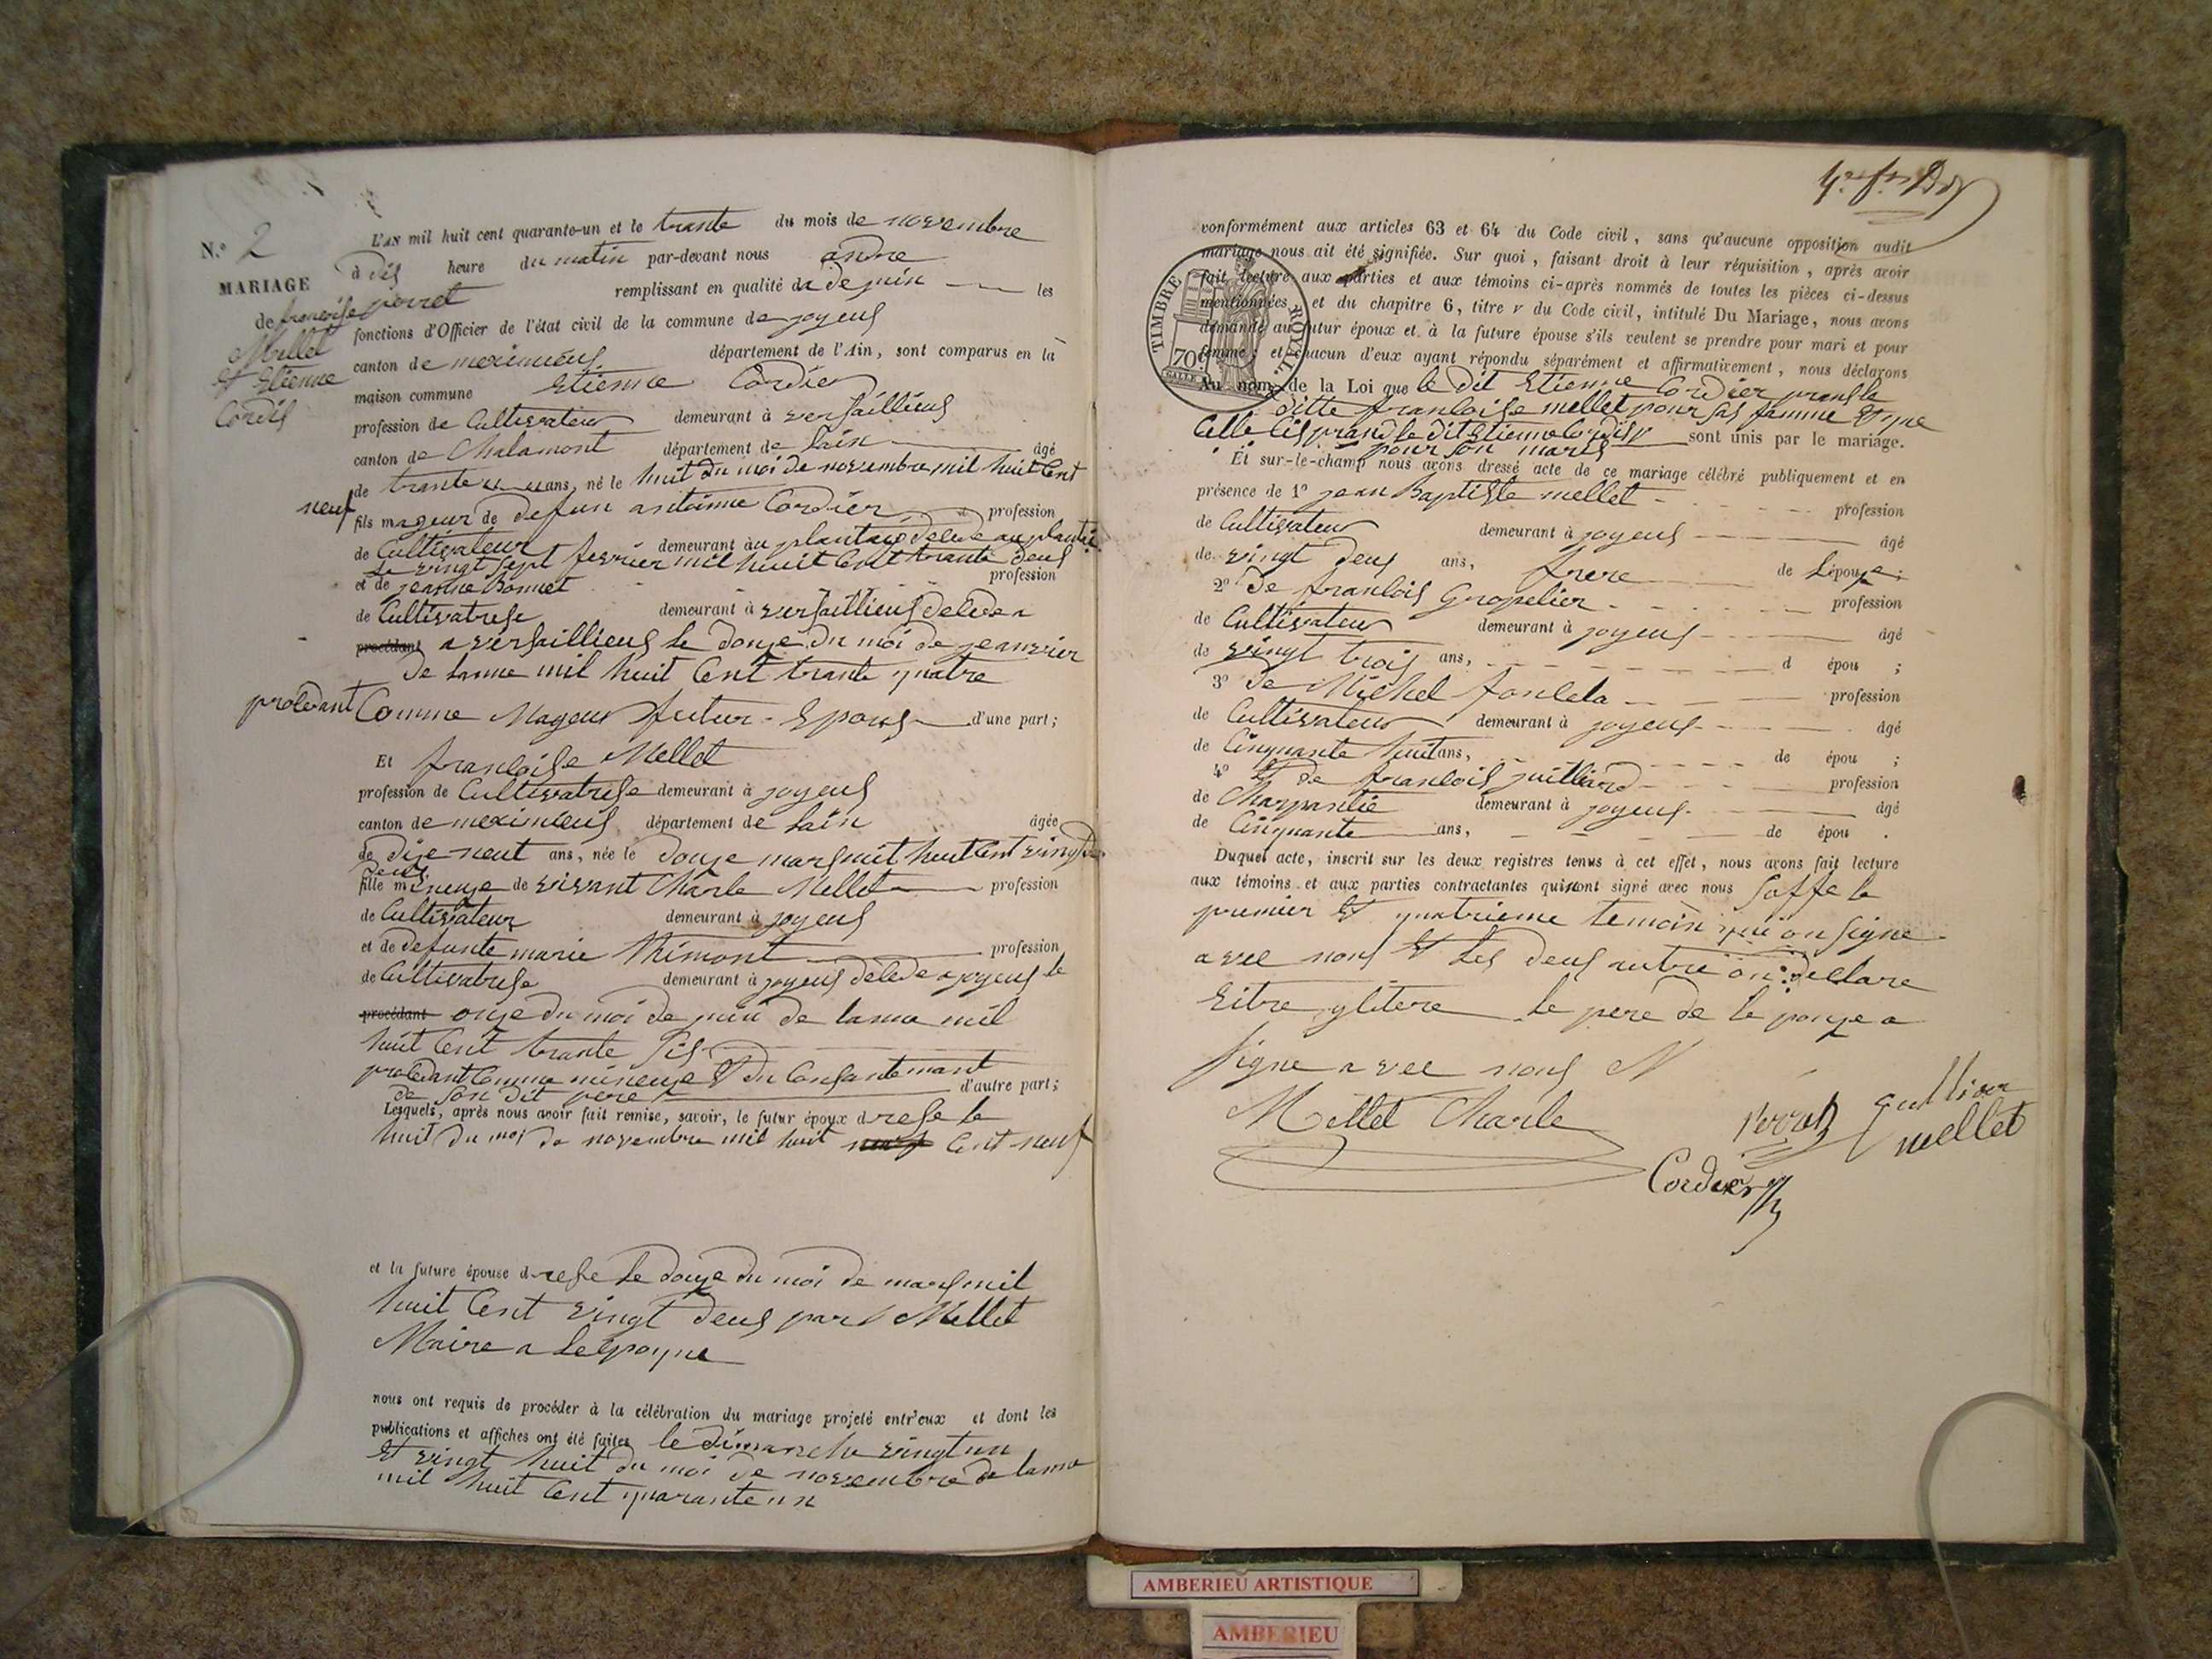 N.º 2
MARIAGE
de francoise
Mellet
et Etienne
Cordié
L'AN mil huit cent quarante-un et le trante du mois de novembre
à dis heure du matin par-devant nous andre
perret remplissant en qualité da de juin les
fonctions d'Officier de l'état civil de la commune de joyeus
canton de meximieus département de l'Ain, sont comparus en la
maison commune Etienne Cordier
profession de Cultivateur demeurant à versaillieus
canton de Chalamont département de Lain âgé
de trante u ans, né le huit du moi de novembre mil huit Cent
neuf
fils mageur de defun antoinne Cordier profession
de Cultivateur demeurant au plantay delede au plantai
Le vingt sept fevrier mil huit Cent trante deus
et de jeanne Bonnet profession
de Cultivatrise demeurant à versaillieus delede a
procédant a versaillieus le douze du moi de jeanvier
de lanne mil huit Cent trante quatre
proledant Comme Mageur futur Epous d'une part;
Et francoise Mellet
profession de Cultivatrise demeurant à joyeus
canton de meximieus département de Lain âgée
de dize neut ans, née le douze mars mil huit Cent vingt
deus
fille mineuze de vivant Charle Mellet profession
de Cultivateur demeurant à joyeus
et de defunte marie Thimont profession
de Cultivatrise demeurant à joyeus delede a joyeus le
procédant onze du moi de juin de lanne mil
huit Cent trante sis
proledant Comme mineuze Et du Consantemant
de son dit pere d'autre part;
Lesquels, après nous avoir fait remise, savoir, le futur époux d rese le
huit du moi de novembre mil huit neuf Cent neuf
et la future épouse d rese le douze du moi de mars mil
huit Cent vingt deus par Mellet
Maire a
nous ont requis de procéder à la célébration du mariage projeté entr'eux et dont les
publications et affiches ont été faites le dimanche vingt un
Et vingt huit du moi de novembre de lanne
mil huit Cent quarante un
conformément aux articles 63 et 64 du Code civil, sans qu'aucune opposition audit
mariage nous ait été signifiée. Sur quoi, faisant droit à leur réquisition, après avoir
fait lecture aux parties et aux témoins ci-après nommés de toutes les pièces ci-dessus
mentionnées, et du chapitre 6, titre v du Code civil, intitulé Du Mariage, nous avons
demandé au futur époux et à la future épouse s'ils veulent se prendre pour mari et pour
femme; et chacun d'eux ayant répondu séparément et affirmativement, nous déclarons
TIMBRE ROYAL
70
Au nom de la Loi que le dit Etienne Cordier prans la
ditte francoise mellet pour sas famme Et que
Celle Cis prand le dit Etienne Cordier sont unis par le mariage.
pour son maris
Et sur-le-champ nous avons dressé acte de ce mariage célébré publiquement et en
présence de 1º jean Baptiste mellet profession
de Cultivateur demeurant à joyeus âgé
de vingt deus ans, frere de Lépouze;
2º de francois Gropelier profession
de Cultivateur demeurant à joyeus âgé
de vingt trois ans, d épou ;
3º de Michel profession
de Cultivateur demeurant à joyeus âgé
de Cinquante huit ans, de épou ;
4º Et de francois juilliard profession
de Charpantié demeurant à joyeus âgé
de Cinquante ans, de épou .
Duquel acte, inscrit sur les deux registres tenus à cet effet, nous avons fait lecture
aux témoins et aux parties contractantes qui n'ont signé avec nous Saffe le
premier Et quatrieme temoin qui on signe
avec nous Et Les deus autre on declare
Eitre ylitere le pere de le pouze a
signe avec nous
Mellet Charle
mellet
Cordier
AMBERIEU ARTISTIQUE
AMBERIEU